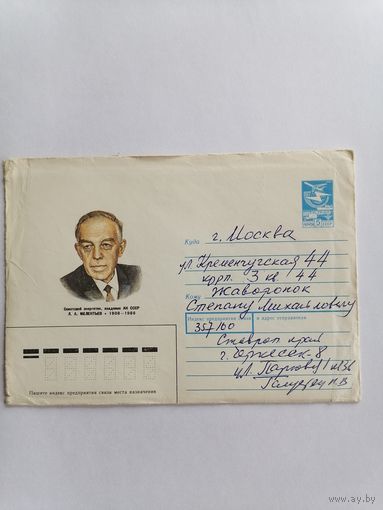 ПОЧТА СССР
г. Москва
Куда
ул. Кременчугская 44
корп. 3 кв 44
Кому Жаворонок
Степану Михайловичу
Советский энергетик, академик АН СССР
Л. А. МЕЛЕНТЬЕВ • 1908–1986
Индекс предприятия связи и адрес отправителя
357100
Ставроп край
г. Черкесск-8
ул. Парковая
Н.В
Пишите индекс предприятия связи места назначения
www.ay.by